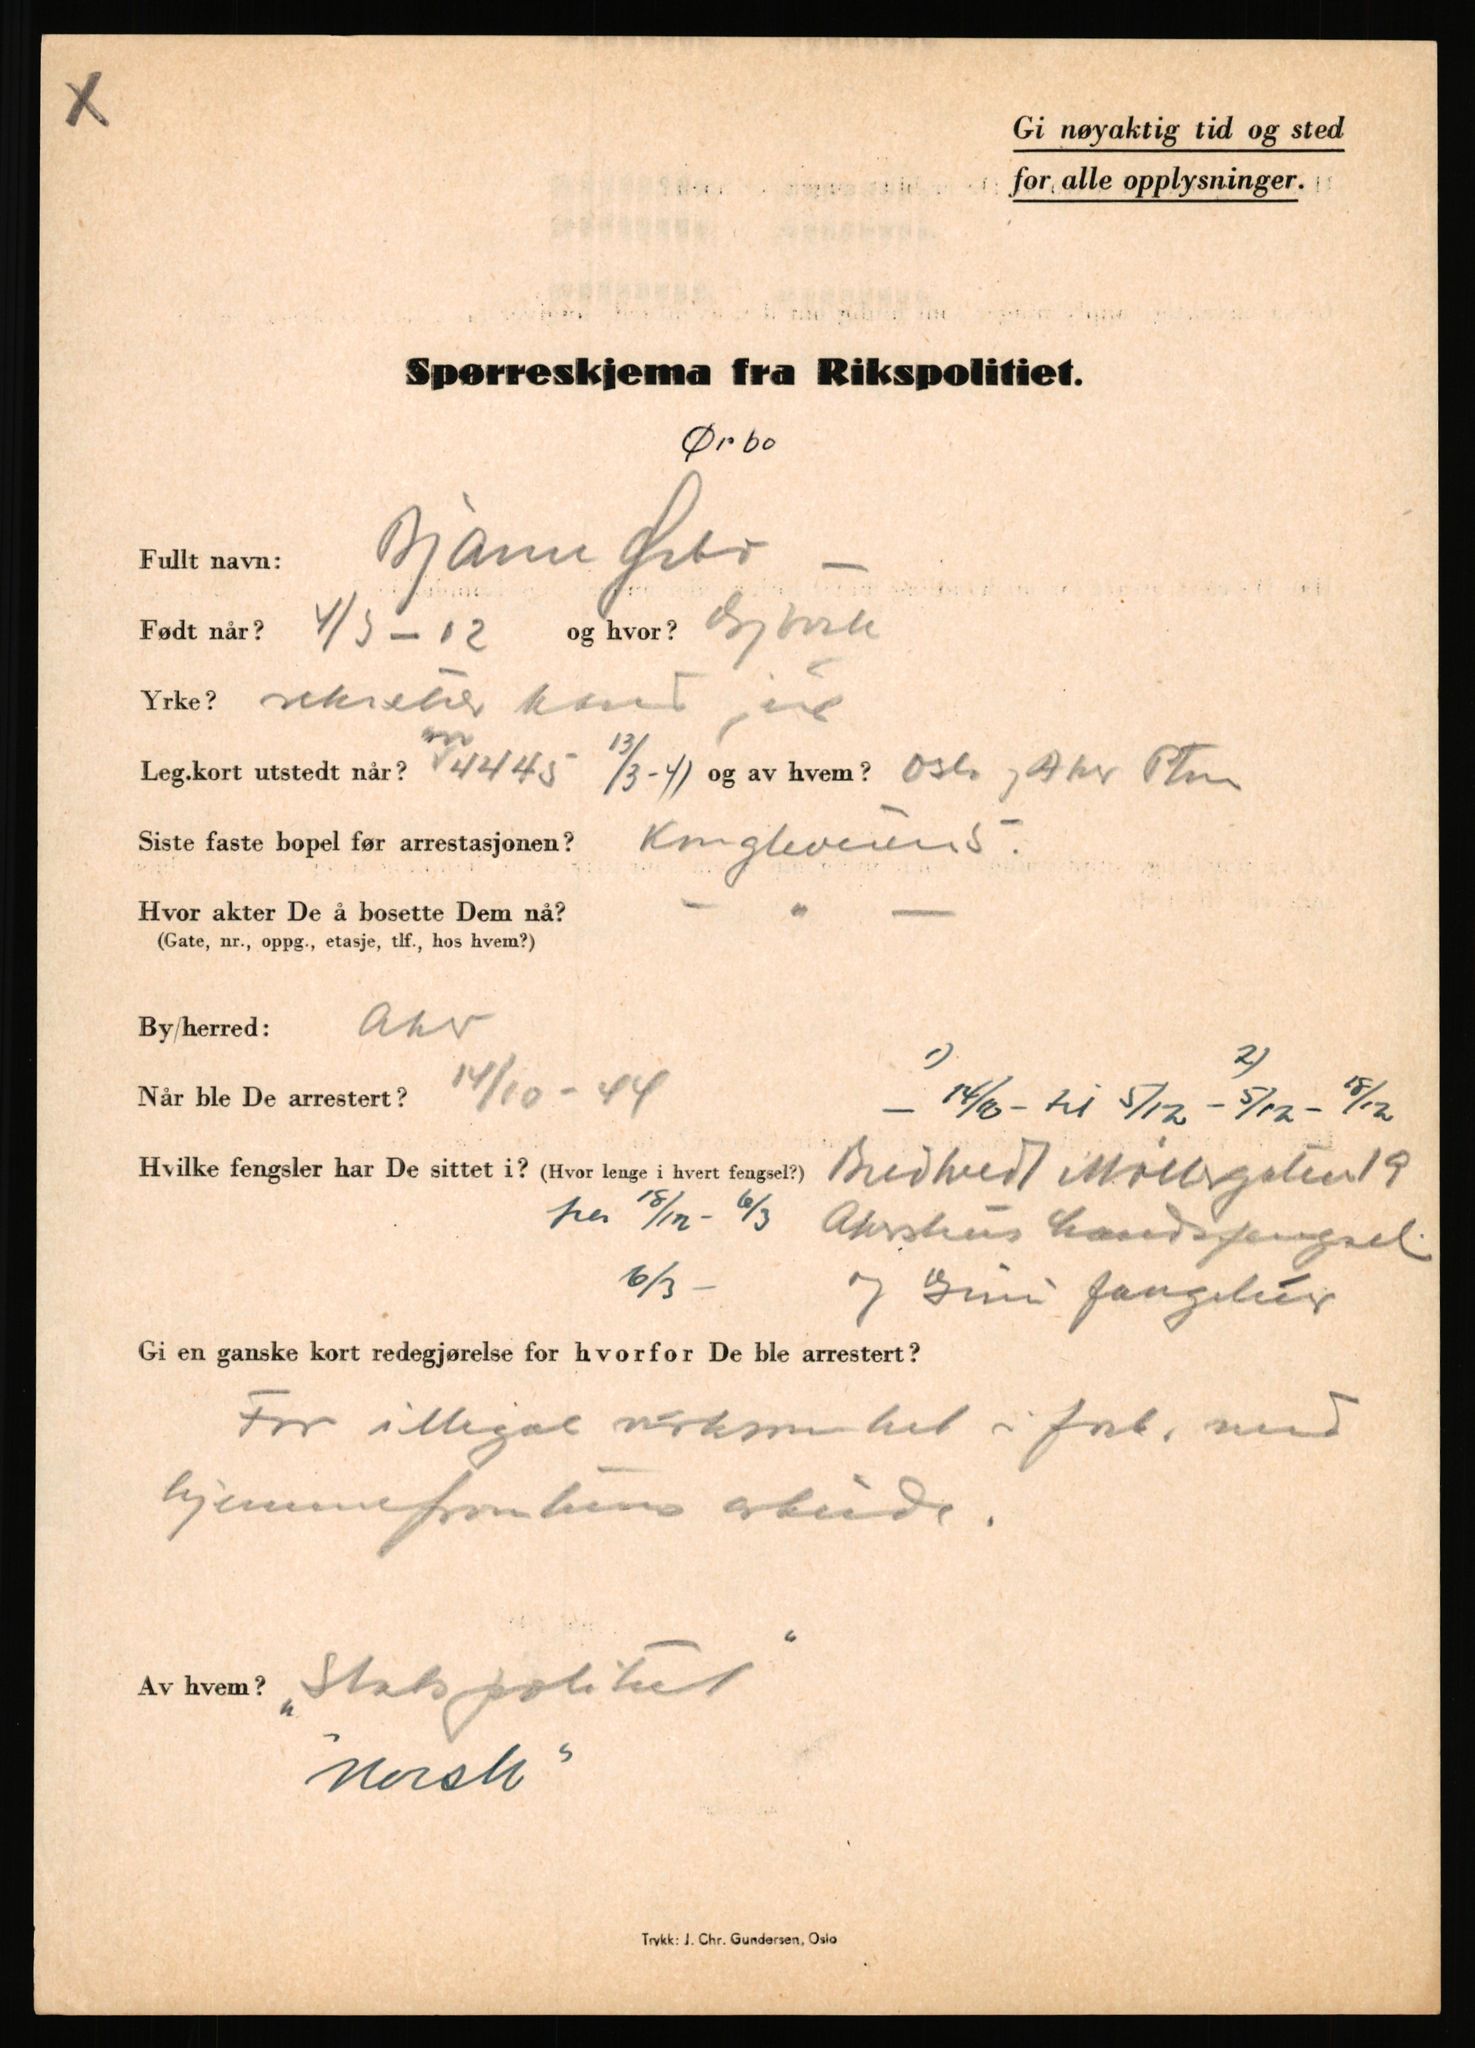 X
Gi nøyaktig tid og sted
for alle opplysninger.
Spørreskjema fra Rikspolitiet.
Ørbo
Fullt navn: Bjarne Ørbo
Født når? 4/3 – 12 og hvor? Gjøvik
Yrke? sekretær kand jur
Leg.kort utstedt når? 4445 13/3-41 og av hvem? Oslo og Aker
Siste faste bopel før arrestasjonen? Kongleveien 5.
Hvor akter De å bosette Dem nå? – " –
(Gate, nr., oppg., etasje, tlf., hos hvem?)
By/herred: Aker
1) 2)
Når ble De arrestert? 14/10 – 44 – 14/10 – til 5/12 – 5/12 – 18/12
Hvilke fengsler har De sittet i? (Hvor lenge i hvert fengsel?) Bredtvedt Møllergaten 19
fra 18/12 – 6/3 Akershus Landsfengsel
6/3 – og Grini fangeleir
Gi en ganske kort redegjørelse for hvorfor De ble arrestert?
For illegal virksomhet i forb. med
hjemmefrontens arbeide.
Av hvem? „Statspolitiet"
"Norsk"
Trykk: J. Chr. Gundersen, Oslo